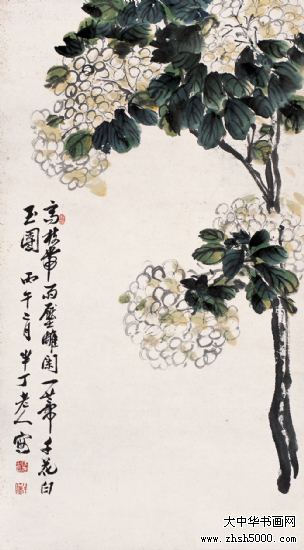 高枝带雨壓雕闌一蒂千花白
玉團 丙午二月半丁老人寫
大中华书画网
www.zhsh5000.com